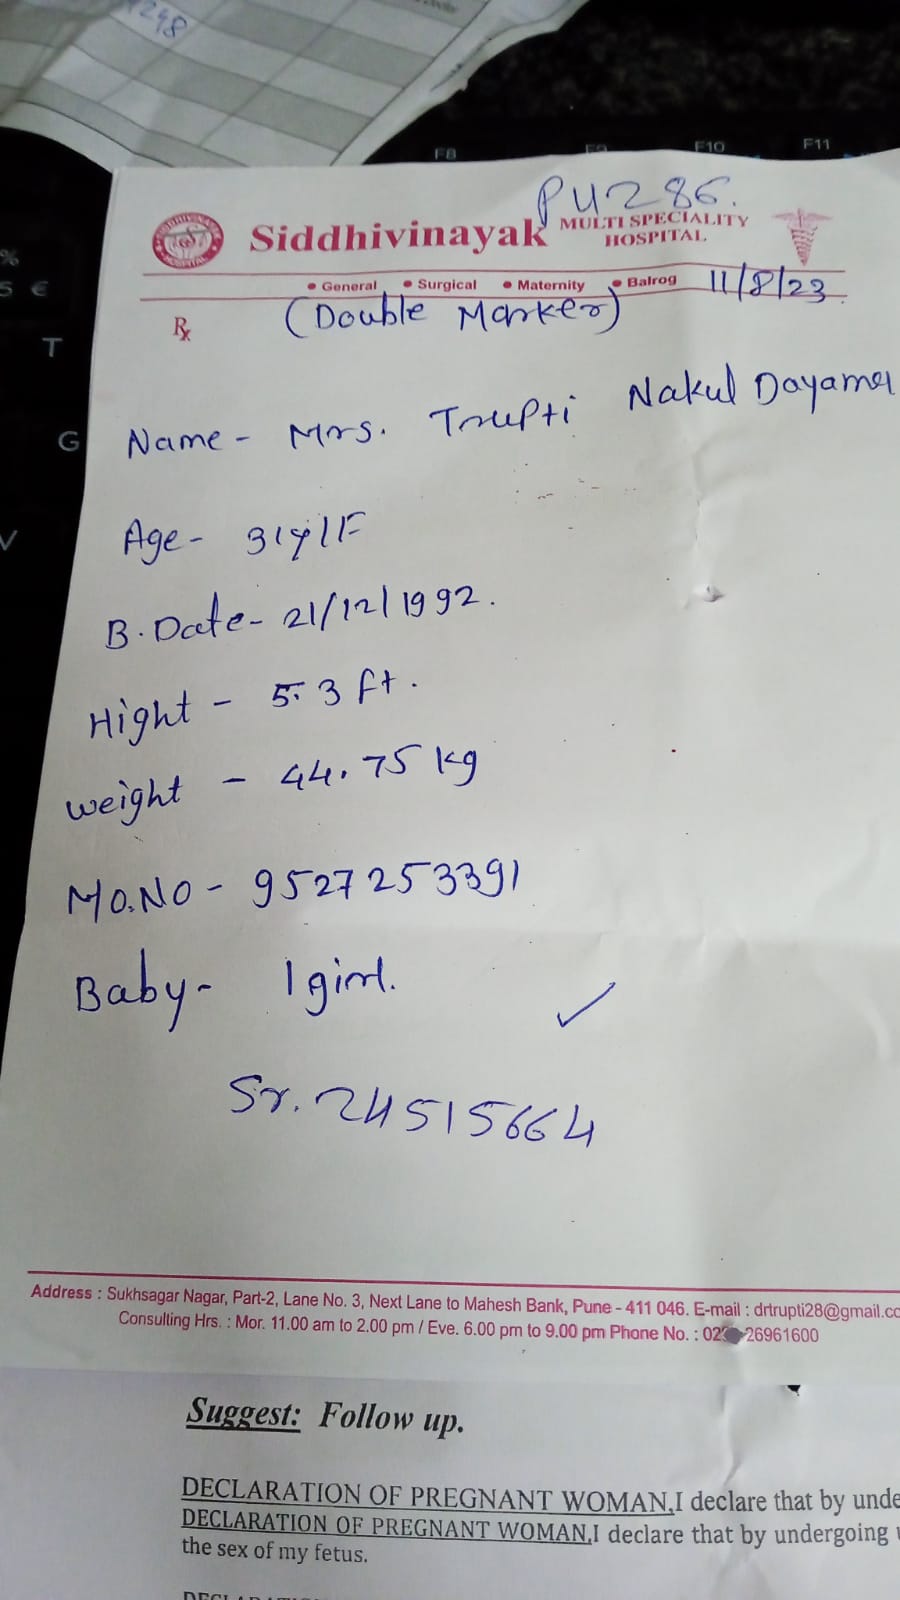 248
F8
F9
F10
F11
%
5 €
T
G
V
PU286.
Siddhivinayak MULTI SPECIALITY
HOSPITAL
• General • Surgical • Maternity • Balrog 11/8/23.
Rx (Double Marker)
Name - Mrs. Trupti Nakul Dayama
Age - 31y/F
B. Date - 21/12/1992.
Hight - 5.3 ft.
weight - 44.75 kg
Mo.No - 9527253391
Baby - 1 girl.
Sr. 24515664
Address : Sukhsagar Nagar, Part-2, Lane No. 3, Next Lane to Mahesh Bank, Pune - 411 046. E-mail : drtrupti28@gmail.co
Consulting Hrs. : Mor. 11.00 am to 2.00 pm / Eve. 6.00 pm to 9.00 pm Phone No. : 02 26961600
Suggest: Follow up.
DECLARATION OF PREGNANT WOMAN,I declare that by unde
DECLARATION OF PREGNANT WOMAN,I declare that by undergoing
the sex of my fetus.